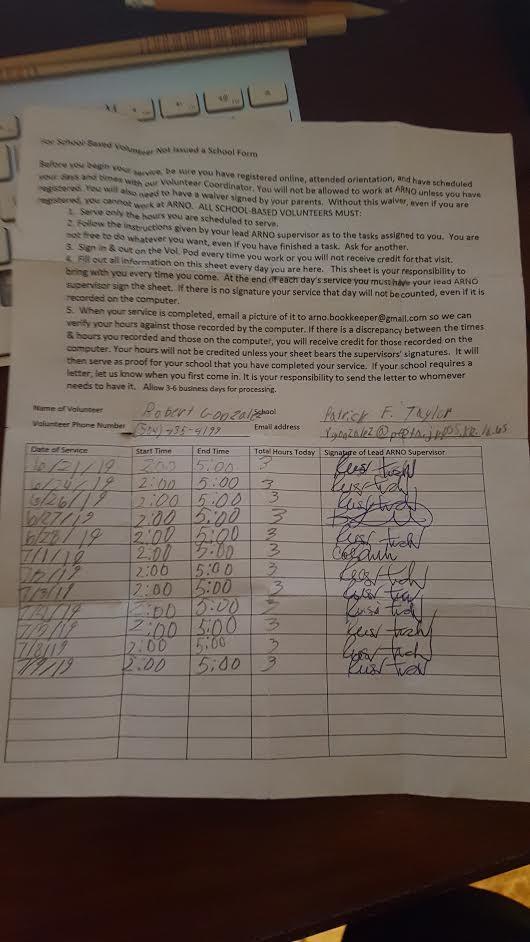 For School Based Volunteer Not Issued a School Form
Before you begin your service, be sure you have registered online, attended orientation, and have scheduled
your days and times with our Volunteer Coordinator. You will not be allowed to work at ARNO unless you have
registered. You will also need to have a waiver signed by your parents. Without this waiver, even if you are
registered, you cannot work at ARNO. ALL SCHOOL-BASED VOLUNTEERS MUST:
1. Serve only the hours you are scheduled to serve.
2. Follow the instructions given by your lead ARNO supervisor as to the tasks assigned to you. You are
not free to do whatever you want, even if you have finished a task. Ask for another.
3. Sign in & out on the Vol. Pod every time you work or you will not receive credit for that visit.
4. Fill out all information on this sheet every day you are here. This sheet is your responsibility to
bring with you every time you come. At the end of each day's service you must have your lead ARNO
supervisor sign the sheet. If there is no signature your service that day will not be counted, even if it is
recorded on the computer.
5. When your service is completed, email a picture of it to arno.bookkeeper@gmail.com so we can
verify your hours against those recorded by the computer. If there is a discrepancy between the times
& hours you recorded and those on the computer, you will receive credit for those recorded on the
computer. Your hours will not be credited unless your sheet bears the supervisors' signatures. It will
then serve as proof for your school that you have completed your service. If your school requires a
letter, let us know when you first come in. It is your responsibility to send the letter to whomever
needs to have it. Allow 3-6 business days for processing.
Name of Volunteer Robert Gonzalez School Patrick F. Taylor
Volunteer Phone Number (504)-435-4199 Email address
Date of Service Start Time End Time Total Hours Today Signature of Lead ARNO Supervisor
6/21/19 2:00 5:00 3
6/24/19 2:00 5:00 3
6/26/19 2:00 5:00 3
6/27/19 2:00 5:00 3
6/28/19 2:00 5:00 3
7/1/19 2:00 5:00 3
7/2/19 2:00 5:00 3
7/3/19 2:00 5:00 3
2:00 5:00 3
2:00 5:00 3
7/8/19 2:00 5:00 3
7/9/19 2:00 5:00 3